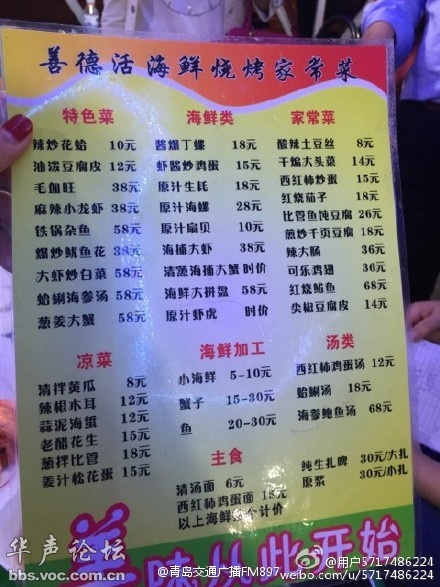 善德活海鲜烧烤家常菜
特色菜
辣炒花蛤 10元
油泼豆腐皮 12元
毛血旺 38元
麻辣小龙虾 38元
铁锅杂鱼 58元
爆炒鱿鱼花 38元
大虾炒白菜 58元
蛤蜊海参汤 58元
葱姜大蟹 58元
海鲜类
酱爆丁螺 18元
虾酱炒鸡蛋 15元
原汁生蚝 18元
原汁海螺 28元
原汁扇贝 10元
海捕大虾 38元
清蒸海捕大蟹 时价
海鲜大拼盘 58元
原汁虾虎 时价
家常菜
酸辣土豆丝 8元
干煸大头菜 14元
西红柿炒蛋 15元
红烧茄子 18元
比管鱼炖豆腐 26元
煎炒千页豆腐 18元
辣大肠 36元
可乐鸡翅 36元
红烧鲳鱼 68元
尖椒豆腐皮 14元
凉菜
清拌黄瓜 8元
辣根木耳 12元
蒜泥海蜇 12元
老醋花生 15元
葱拌比管 18元
姜汁松花蛋 15元
海鲜加工
小海鲜 5-10元
蟹子 15-30元
鱼 20-30元
主食
清汤面 6元
西红柿鸡蛋面
以上海鲜 计价
汤类
西红柿鸡蛋汤 12元
蛤蜊汤 18元
海参鲍鱼汤 68元
纯生扎啤 30元/大扎
原浆 30元/小扎
味从此开始
华声论坛
bbs.voc.com.cn
@青岛交通广播FM897
@用户5717486224
weibo.com/u/5717486224